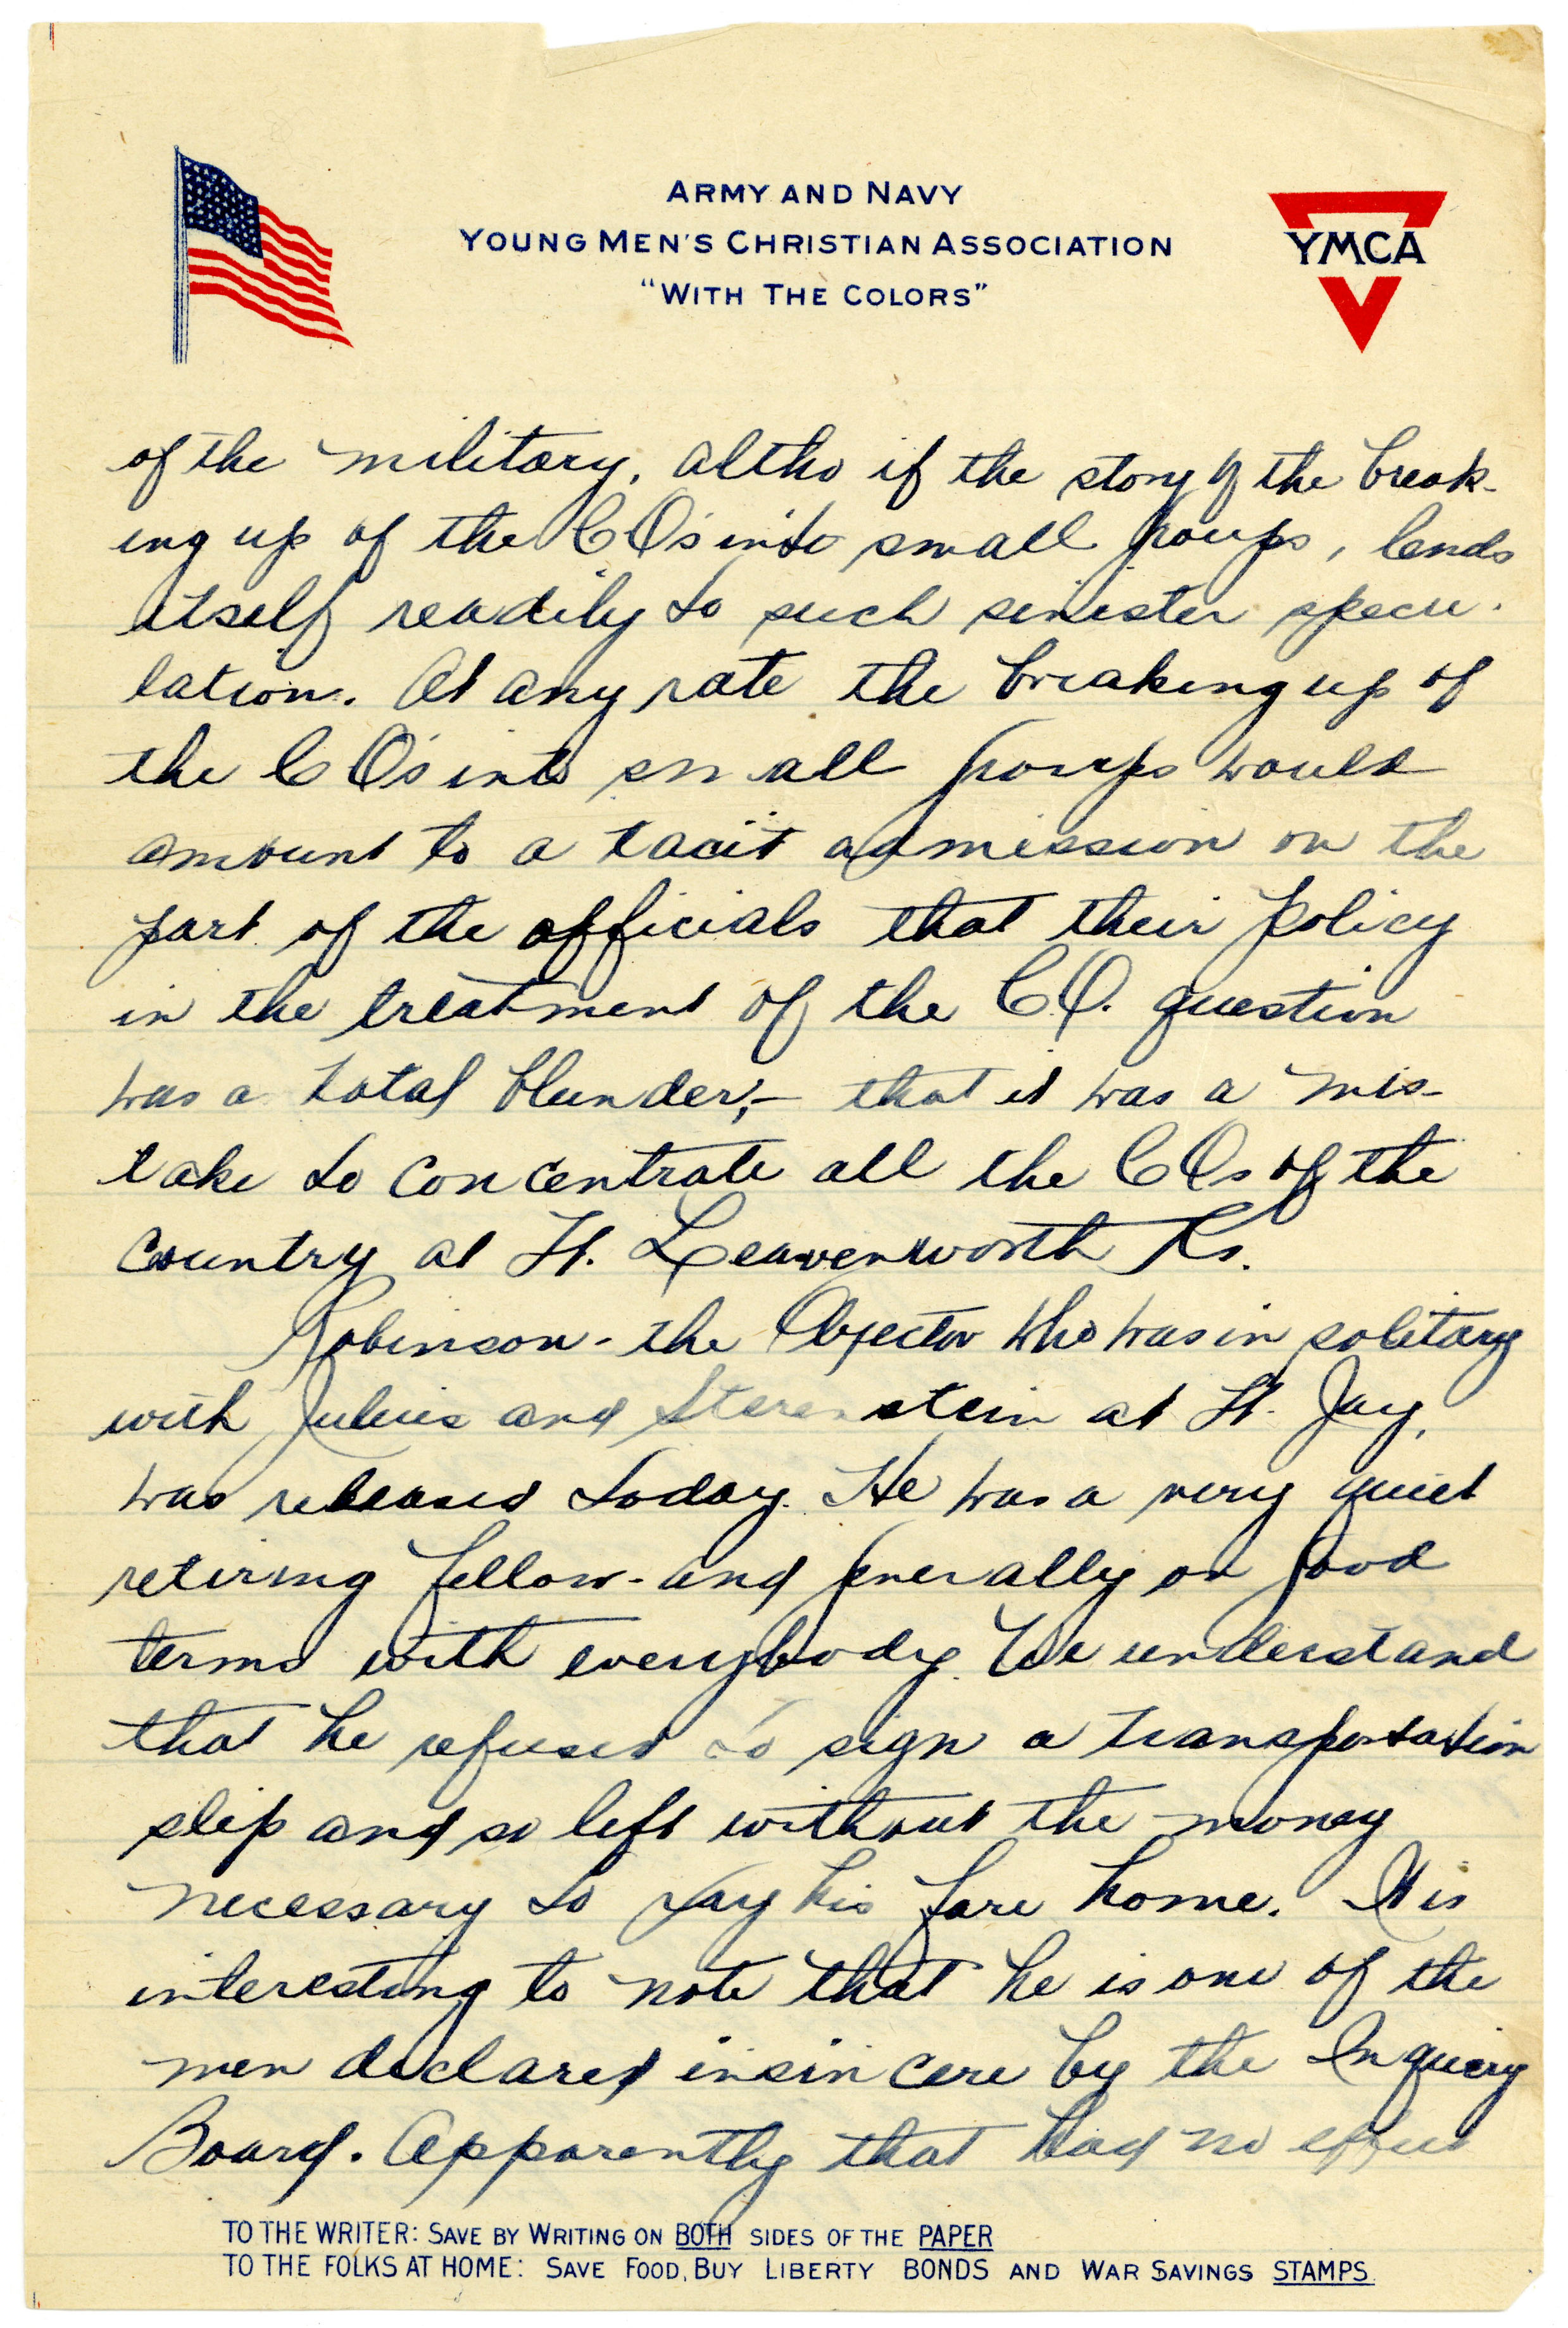 ARMY AND NAVY
YOUNG MEN'S CHRISTIAN ASSOCIATION
"WITH THE COLORS"
YMCA
of the military, altho if the story of the break-
ing up of the C.O.'s into small groups, lends
itself readily to such sinister specu-
lation. At any rate the breaking up of
the C.O.'s into small groups would
amount to a tacit admission on the
part of the officials that their policy
in the treatment of the C.O. question
was a total blunder;— that it was a mis-
take to concentrate all the C.Os of the
country at Ft. Leavenworth Ks.
Robinson - the Objector who was in solitary
with Julius and Sterenstein at Ft. Jay,
was released today. He was a very quiet
retiring fellow - and generally on good
terms with everybody. We understand
that he refused to sign a transportation
slip and so left without the money
necessary to pay his fare home. It is
interesting to note that he is one of the
men declared insincere by the Inquiry
Board. Apparently that had no effect
TO THE WRITER: SAVE BY WRITING ON BOTH SIDES OF THE PAPER
TO THE FOLKS AT HOME: SAVE FOOD, BUY LIBERTY BONDS AND WAR SAVINGS STAMPS